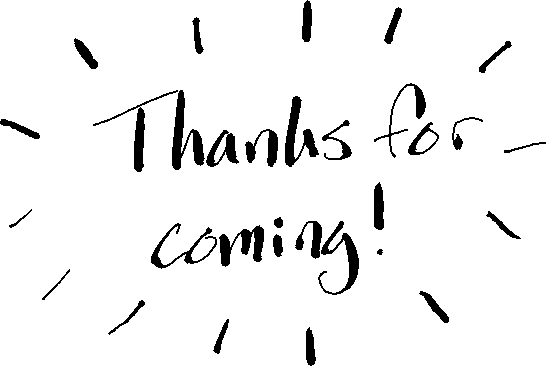 Thanks for
coming!